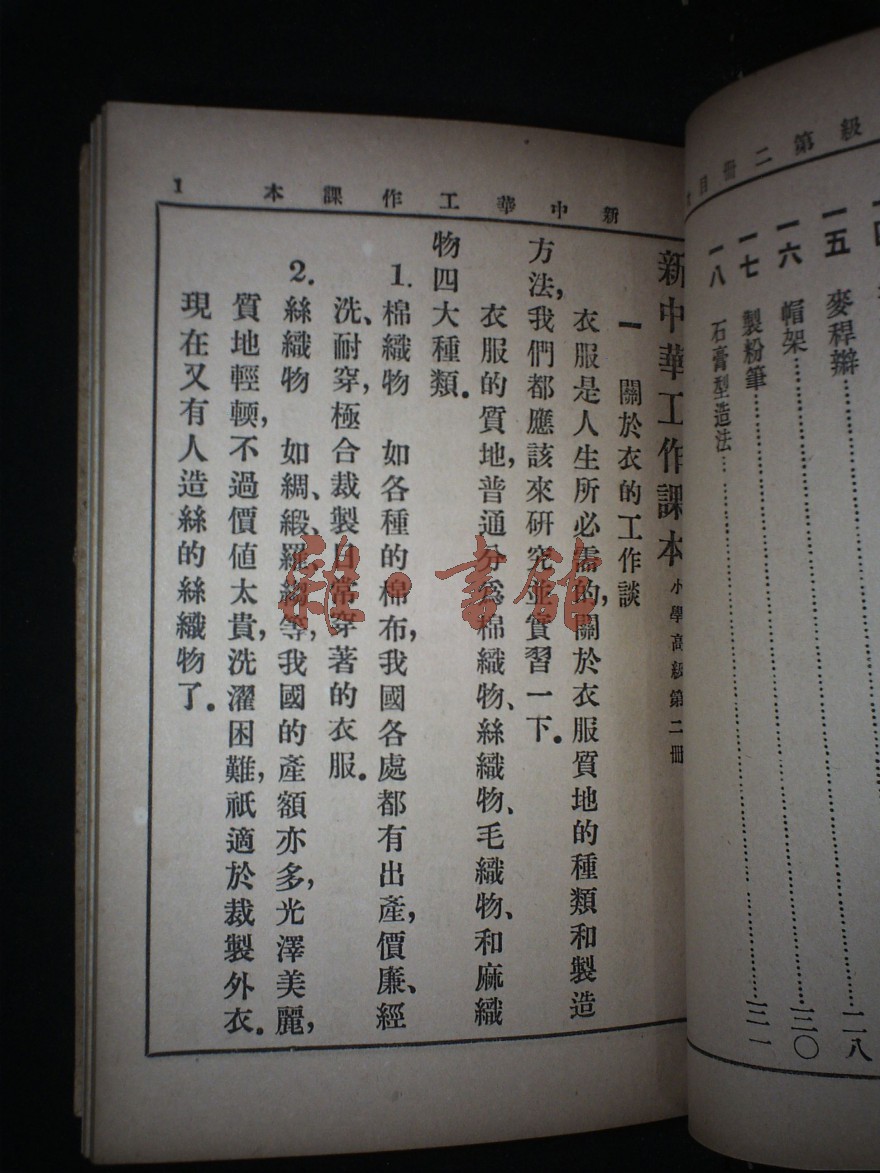 級第二冊目
一五 麥稈辮……二八
一六 帽架……三〇
一七 製粉筆……三一
一八 石膏型造法……
新中華工作課本 1
新中華工作課本 小學高級第二冊
一 關於衣的工作談
衣服是人生所必需的，關於衣服質地的種類和製造
方法，我們都應該來研究並實習一下。
衣服的質地，普通分爲棉織物、絲織物、毛織物、和麻織
物四大種類。
1. 棉織物 如各種的棉布，我國各處都有出產，價廉、經
洗、耐穿，極合裁製日常穿著的衣服。
2. 絲織物 如綢、緞、羅、縐等，我國的產額亦多，光澤美麗，
質地輕輭，不過價值太貴，洗濯困難，祇適於裁製外衣。
現在又有人造絲的絲織物了。
雜·書館